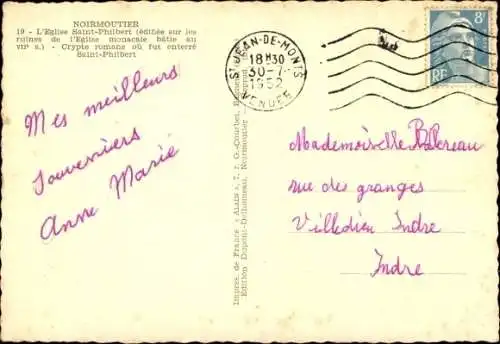 NOIRMOUTIER
19 - L'Eglise Saint-Philbert (édifiée sur les
ruines de l'Eglise monacale bâtie au
VIIe s.) - Crypte romane où fut enterré
Saint-Philbert
Mes meilleurs
souvenirs
Anne Marie
Impres. de France « Alain », 7, r. G.-Courbet,
Edition Dupont-Delhomeau, Noirmoutier -
ST JEAN-DE-MONTS
18H30
30-7
1952
VENDEE
8F
RF
Mademoiselle
rue des granges
Villedieu Indre
Indre